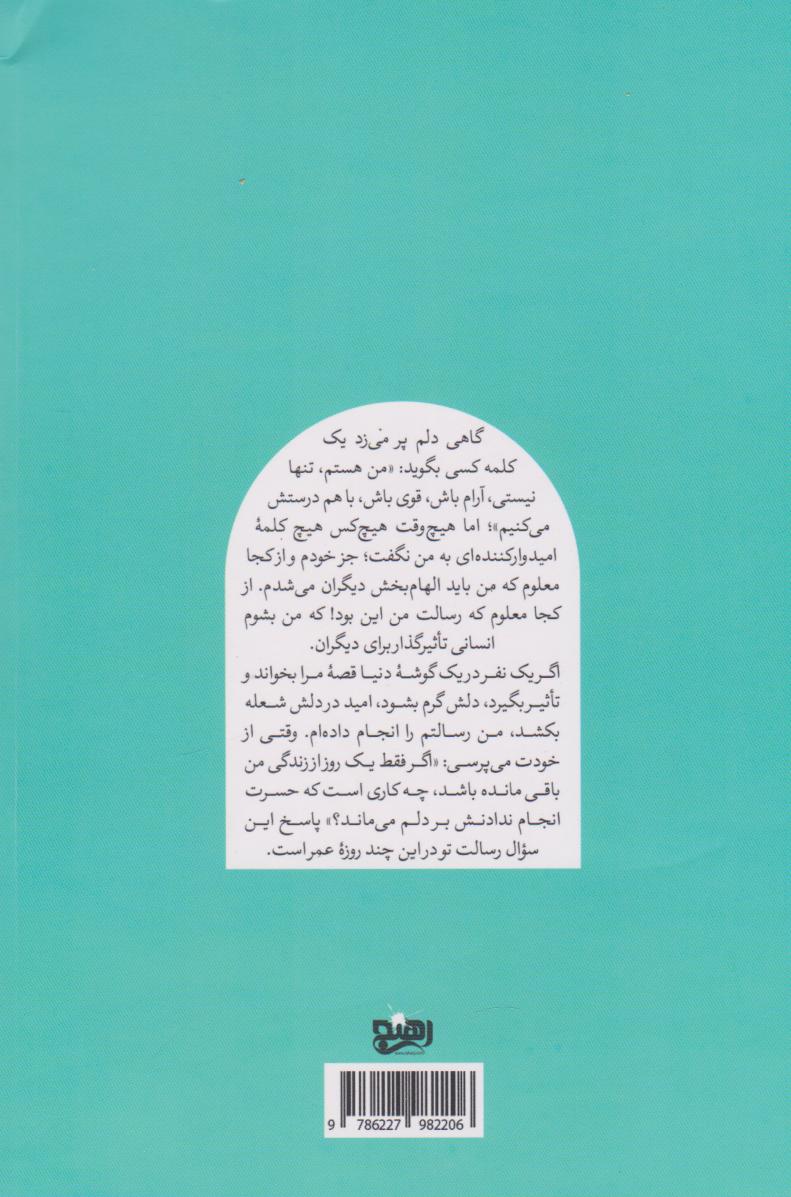 گاهی دلم پر می‌زد یک
کلمه کسی بگوید: «من هستم، تنها
نیستی، آرام باش، قوی باش، با هم درستش
می‌کنیم»؛ اما هیچ‌وقت هیچ‌کس هیچ کلمهٔ
امیدوارکننده‌ای به من نگفت؛ جز خودم و از کجا
معلوم که من باید الهام‌بخش دیگران می‌شدم. از
کجا معلوم که رسالت من این بود! که من بشوم
انسانی تأثیرگذار برای دیگران.
اگر یک نفر در یک گوشهٔ دنیا قصهٔ مرا بخواند و
تأثیر بگیرد، دلش گرم بشود، امید در دلش شعله
بکشد، من رسالتم را انجام داده‌ام. وقتی از
خودت می‌پرسی: «اگر فقط یک روز از زندگی من
باقی مانده باشد، چه کاری است که حسرت
انجام ندادنش بر دلم می‌ماند؟» پاسخ این
سؤال رسالت تو در این چند روزهٔ عمر است.
9 786227 982206